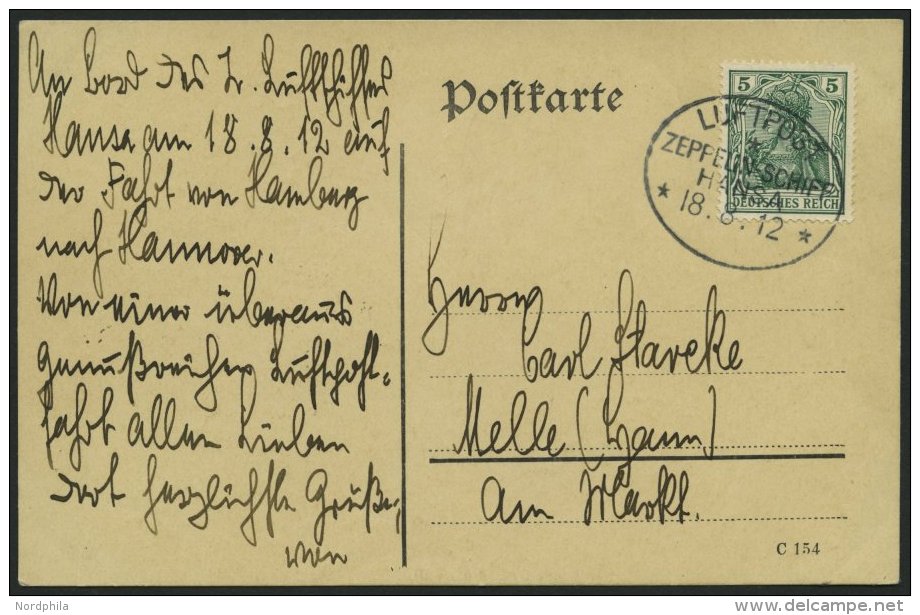 An Bord des Z. Luftschiffes
Hansa am 18.8.12 auf
der Fahrt von Hamburg
nach Hannover.
Von einer überaus
genußreichen Luftschiff-
fahrt allen Lieben
dort herzlichste Grüße,
von
Postkarte
5 5
DEUTSCHES REICH
LUFTPOST
ZEPPELIN-SCHIFF
HANSA
* 18. 8. 12 *
Herrn
Carl Starcke
Melle (Hann)
Am Markt.
C 154
Nordphila
delcampe.net